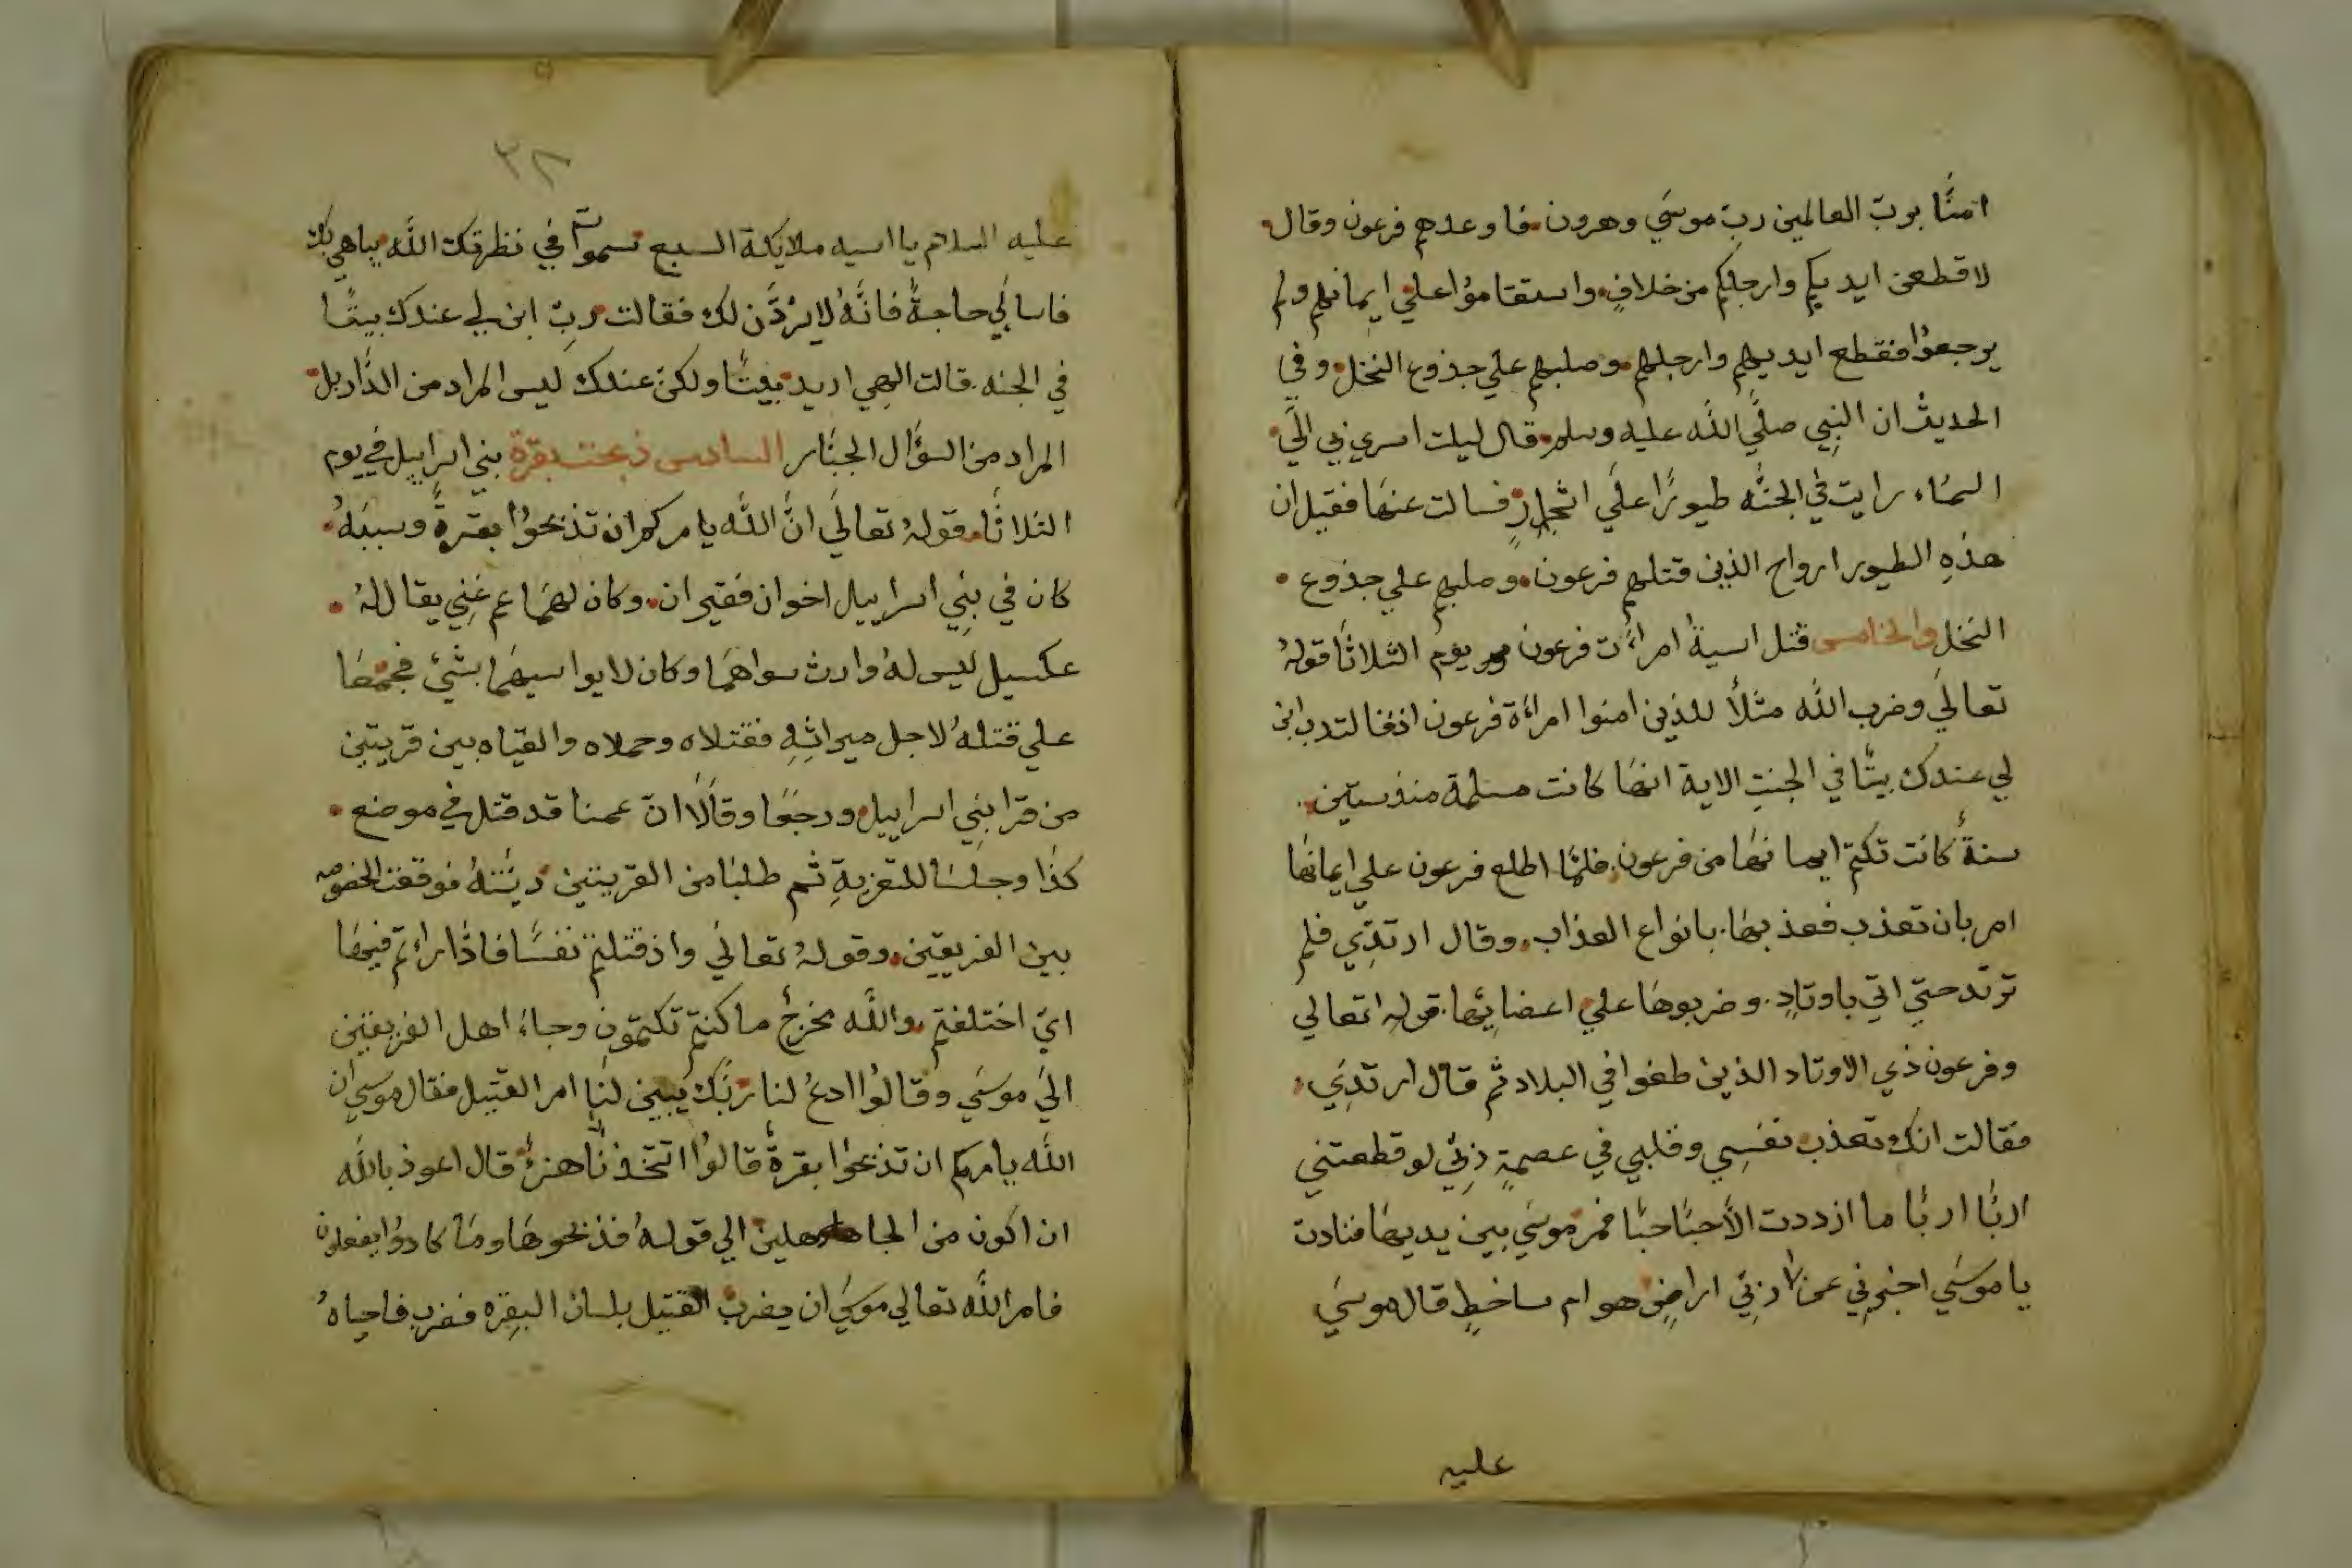 امنَّا بربّ العالمين ربّ موسَي وهرون فاوعدهم فرعون وقال
لاقطعن ايديكم وارجلكم من خلافٍ واستقامؤا علي ايمانهم ولم
يرجعؤا فقطع ايديهم وارجلهم وصلبهم علي جذوع النخل وفي
الحديث ان النبِي صلَّي اللَّه عليه وسلم قال ليلت اسري بي الَي
السمَاء رايت في الجنَّه طيورًا علَي اشجارٍ فسالت عنهَا فقيل ان
هذهِ الطيور ارواح الذين قتلهم فرعون وصلبهم علي جذوع
النخل والخامس قتل اسيةُ امراءَت فرعون يوم الثلاثَا قولهُ
تعالَي وضرب اللَّه مثلاً للذين امنوا امراءَة فرعون اذ قالت رب ابن
لي عندك بيتًا في الجنتِ الاية انهَا كانت مسلمة منذ ستين
سنةً كانت تكتم ايمانهَا من فرعون فلمَّا اطلع فرعون علي ايمانهَا
امر بان تعذب فعذبهَا بانواع العذاب وقال ارتدِّي فلم
ترتد حتَي اتي باوتادٍ وضربوهَا علي اعضائِهَا قوله تعالي
وفرعون ذي الاوتاد الذين طغوا في البلاد ثم قال ارتدِّي
فقالت انك تعذب نفسِي وقلبي في عصمةٍ ربِّي لو قطعتني
اربًا اربًا ما ازددت الأَحبًا حبًا فمر موسَي بين يديهَا فنادت
يا موسَي اخبرنِي عن ربِّي اراضٍ هو ام ساخطٍ قال موسَي
عليه
٣٨
عليه السلام يا اسيه ملايكة السبع سموات في نظرتك اللَّه يباهي بك
فاسالي حاجةً فانَّهُ لا يرْدَّن لك فقالت ربّ ابن لِي عندك بيتًا
في الجنه قالت الهِي اريد بيتًا ولكن عندك ليس المراد من الدَّار بل
المراد من السؤال الجبَّار السادس ذبحت بقرة بني اسراييل في يوم
الثلاثَا قولهُ تعالَي انَّ اللَّه يامركم ان تذبحوُا بقرةً وسببَهُ
كان في بنِي اسراييل اخوان فقيران وكان لهمَا عم غنِي يقال لهُ
عكسيل ليس لهُ وارث سواهمَا وكان لا يواسيهمَا بشَيْ فجمعَا
علي قتلهُ لاجل ميراثِهِ فقتلاه وحملاه والقياه بين قريتين
من قرا بنِي اسراييل ورجعَا وقالَا انّ عمنا قد قتل في موضع
كذا وجلسَا للتعزيةِ ثم طلبَا من القريتين ديَّتهُ فوقعت الخصومه
بين الفريقين وقولهُ تعالَي واذ قتلتم نفسًا فادَّاراءتم فيهَا
ايّ اختلفتم واللَّه مخرجٌ ما كنتم تكتمون وجاءَ اهل الفريقين
الَي موسَي وقالوُا ادعُ لنا ربَّك يُبيّن لنا امر القتيل فقال موسي ان
اللَّه يامركم ان تذبحوا بقرةً قالوُا اتتخذنَا هزءً قال اعوذ باللَّه
ان اكون من الجاهلين الي قولهُ فذبحوهَا ومَا كادوُا يفعلون
فامر اللَّه تعالي موسَي ان يضرب القتيل بلسان البقره فضرب فاحياهُ